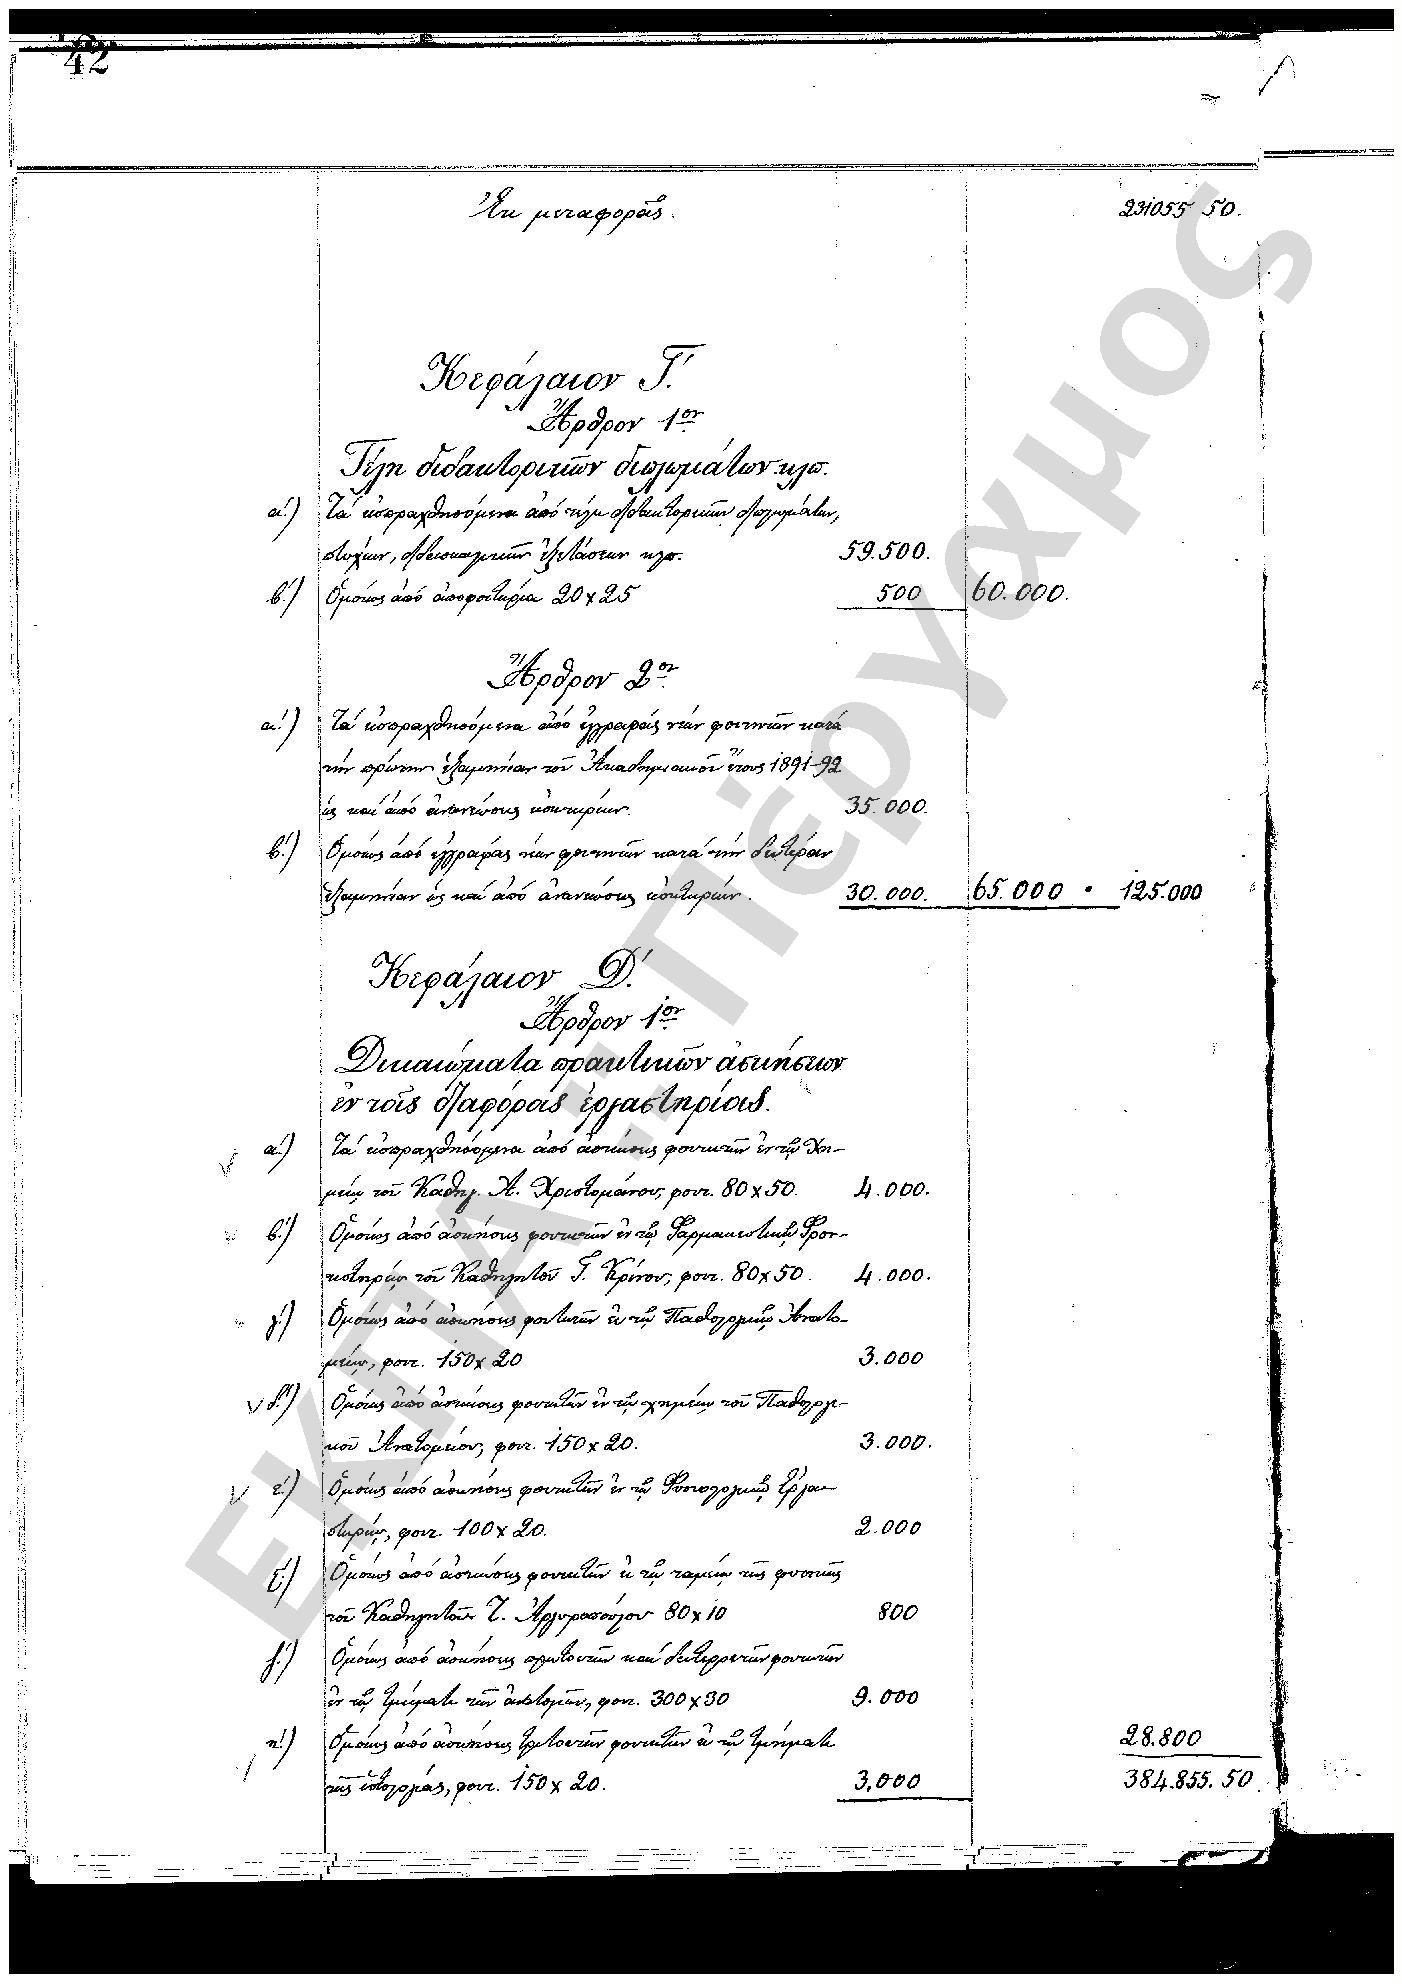 42
Ἐκ μεταφορᾶς. 231055 50.
Κεφάλαιον Γ'.
Ἄρθρον 1ον
Τέλη διδακτορικῶν διπλωμάτων κλπ.
α') Τὰ εἰσπραχθησόμενα ἀπὸ τέλη διδακτορικῶν διπλωμάτων,
πτυχίων, διδασκαλικῶν ἐξετάσεων κλπ. 59.500.
β') Ὁμοίως ἀπὸ ἀποφοιτήρια 20 x 25 500 60.000.
Ἄρθρον 2ον
α') Τὰ εἰσπραχθησόμενα ἀπὸ ἐγγραφὰς νέων φοιτητῶν κατὰ
τὴν πρώτην ἑξαμηνίαν τοῦ Ἀκαδημιακοῦ ἔτους 1891-92
ὡς καὶ ἀπὸ ἀνανεώσεις εἰσιτηρίων. 35.000.
β') Ὁμοίως ἀπὸ ἐγγραφὰς νέων φοιτητῶν κατὰ τὴν δευτέραν
ἑξαμηνίαν ὡς καὶ ἀπὸ ἀνανεώσεις εἰσιτηρίων. 30.000. 65.000 • 125.000
Κεφάλαιον Δ'.
Ἄρθρον 1ον
Δικαιώματα πρακτικῶν ἀσκήσεων
ἐν τοῖς διαφόροις ἐργαστηρίοις.
α') Τὰ εἰσπραχθησόμενα ἀπὸ ἀσκήσεις φοιτητῶν ἐν τῷ Χη-
μείῳ τοῦ Καθηγ. Α. Χρηστομάνου, φοιτ. 80 x 50. 4.000.
β') Ὁμοίως ἀπὸ ἀσκήσεις φοιτητῶν ἐν τῷ Φαρμακευτικῷ Φρον-
τιστηρίῳ τοῦ Καθηγητοῦ Γ. Κρίνου, φοιτ. 80 x 50. 4.000.
γ') Ὁμοίως ἀπὸ ἀσκήσεις φοιτητῶν ἐν τῷ Παθολογικῷ Ἀνατο-
μείῳ, φοιτ. 150 x 20 3.000
δ') Ὁμοίως ἀπὸ ἀσκήσεις φοιτητῶν ἐν τῷ χημείῳ τοῦ Παθολογι-
κοῦ Ἀνατομείου, φοιτ. 150 x 20. 3.000.
ε') Ὁμοίως ἀπὸ ἀσκήσεις φοιτητῶν ἐν τῷ Φυσιολογικῷ Ἐργα-
στηρίῳ, φοιτ. 100 x 20. 2.000
ς') Ὁμοίως ἀπὸ ἀσκήσεις φοιτητῶν ἐν τῷ ταμείῳ τῆς φυσικῆς
τοῦ Καθηγητοῦ Τ. Ἀργυροπούλου 80 x 10 800
ζ') Ὁμοίως ἀπὸ ἀσκήσεις πρωτοετῶν καὶ δευτεροετῶν φοιτητῶν
ἐν τῷ τμήματι τῶν ἀνατομῶν, φοιτ. 300 x 30 9.000
η') Ὁμοίως ἀπὸ ἀσκήσεις τριτοετῶν φοιτητῶν ἐν τῷ τμήματι 28.800
τῆς ἱστολογίας, φοιτ. 150 x 20. 3,000 384.855. 50
ΕΚΠΑ-Πέργαμος